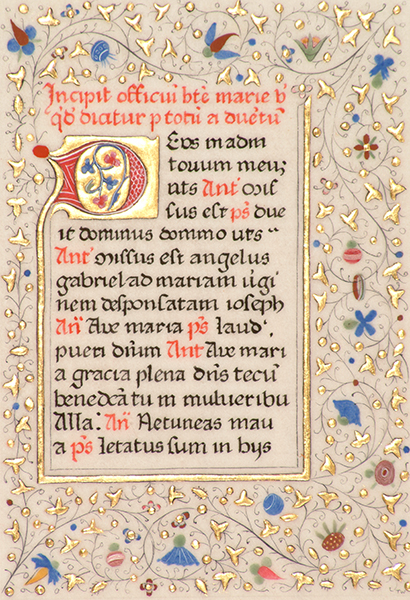 Incipit officiū bt̄e marie v̄
qd̄ dicitur p totū a dvetū
DEvs madiu
tovum mev;
vts Ant̄ orif
sus est ps̄ dve
it dominus dommo vts
Ant̄ missus est angelus
gabriel ad mariam v̄gi
nem desponsatam ioseph
An̄ Ave maria ps̄ laud.
pveri diu̅m Ant Ave mari
a gracia plena dn̄s tecū
benedcāta tu in mulveribu
Alla: An̄ Netuneas mau
a ps̄ letatus sum in hijs